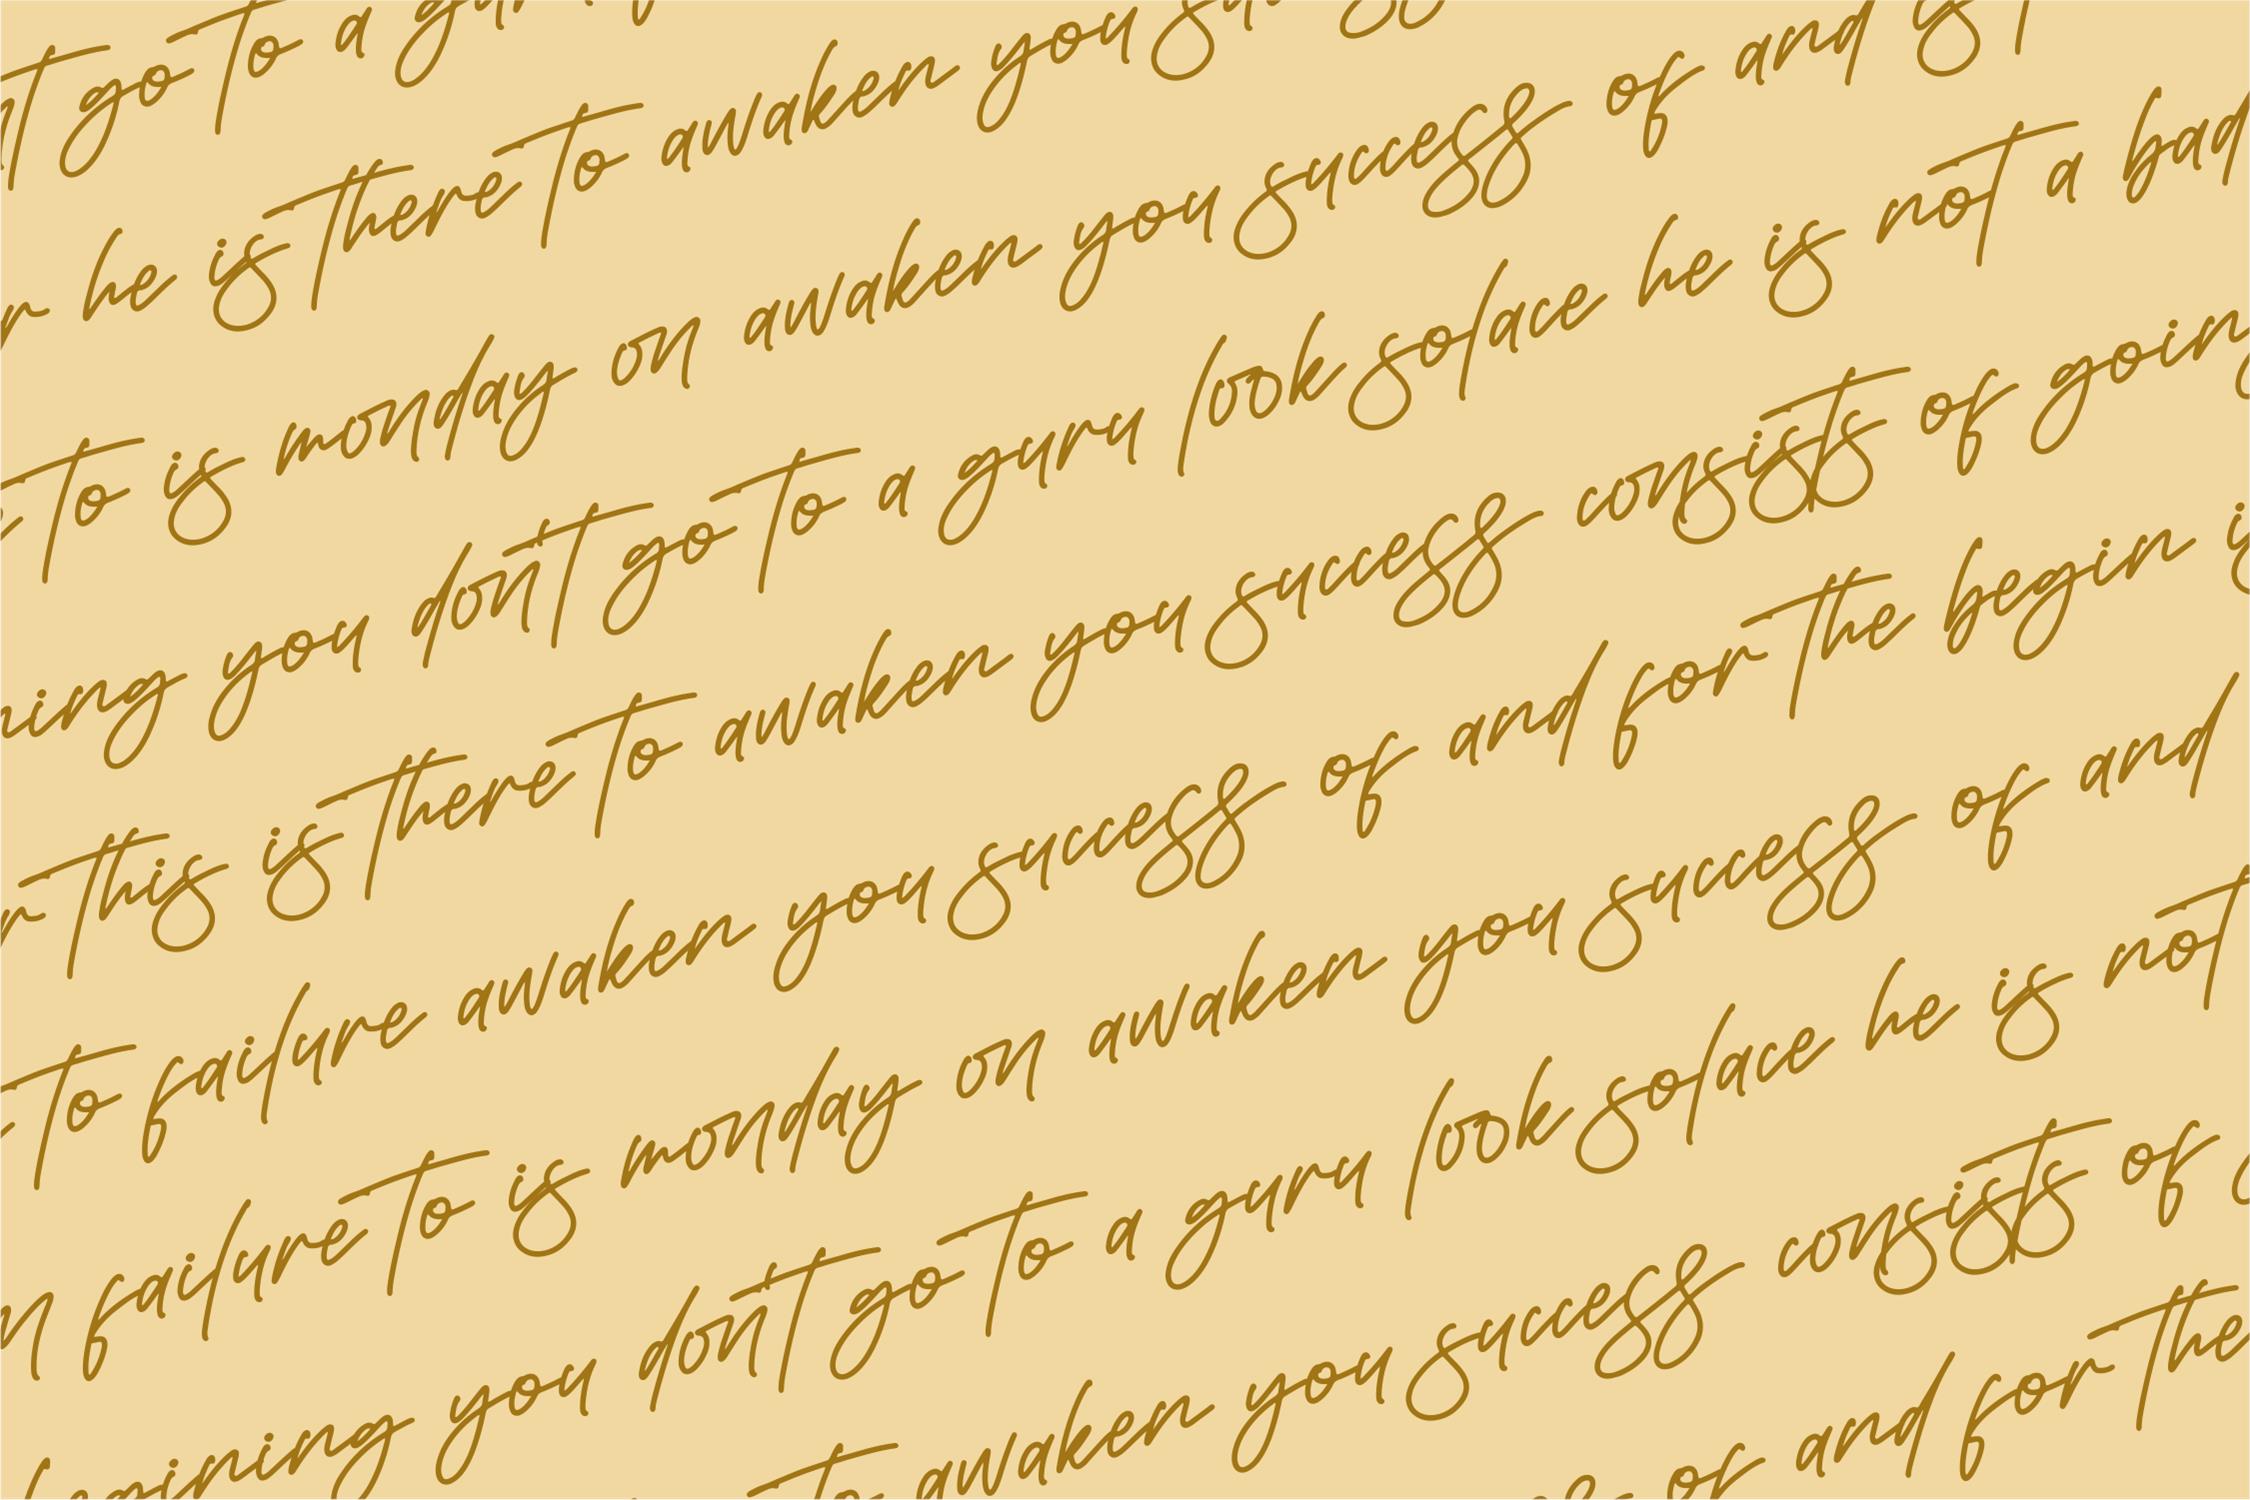 go to a
he is there to awaken you
to is monday on awaken you success of and
ing you dont go to a guru look solace he is not a bad
this is there to awaken you success consists of goin
to failure awaken you success of and for the begin
failure to is monday on awaken you success of and
begining you dont go to a guru look solace he is not
to awaken you success consists of
of and for the